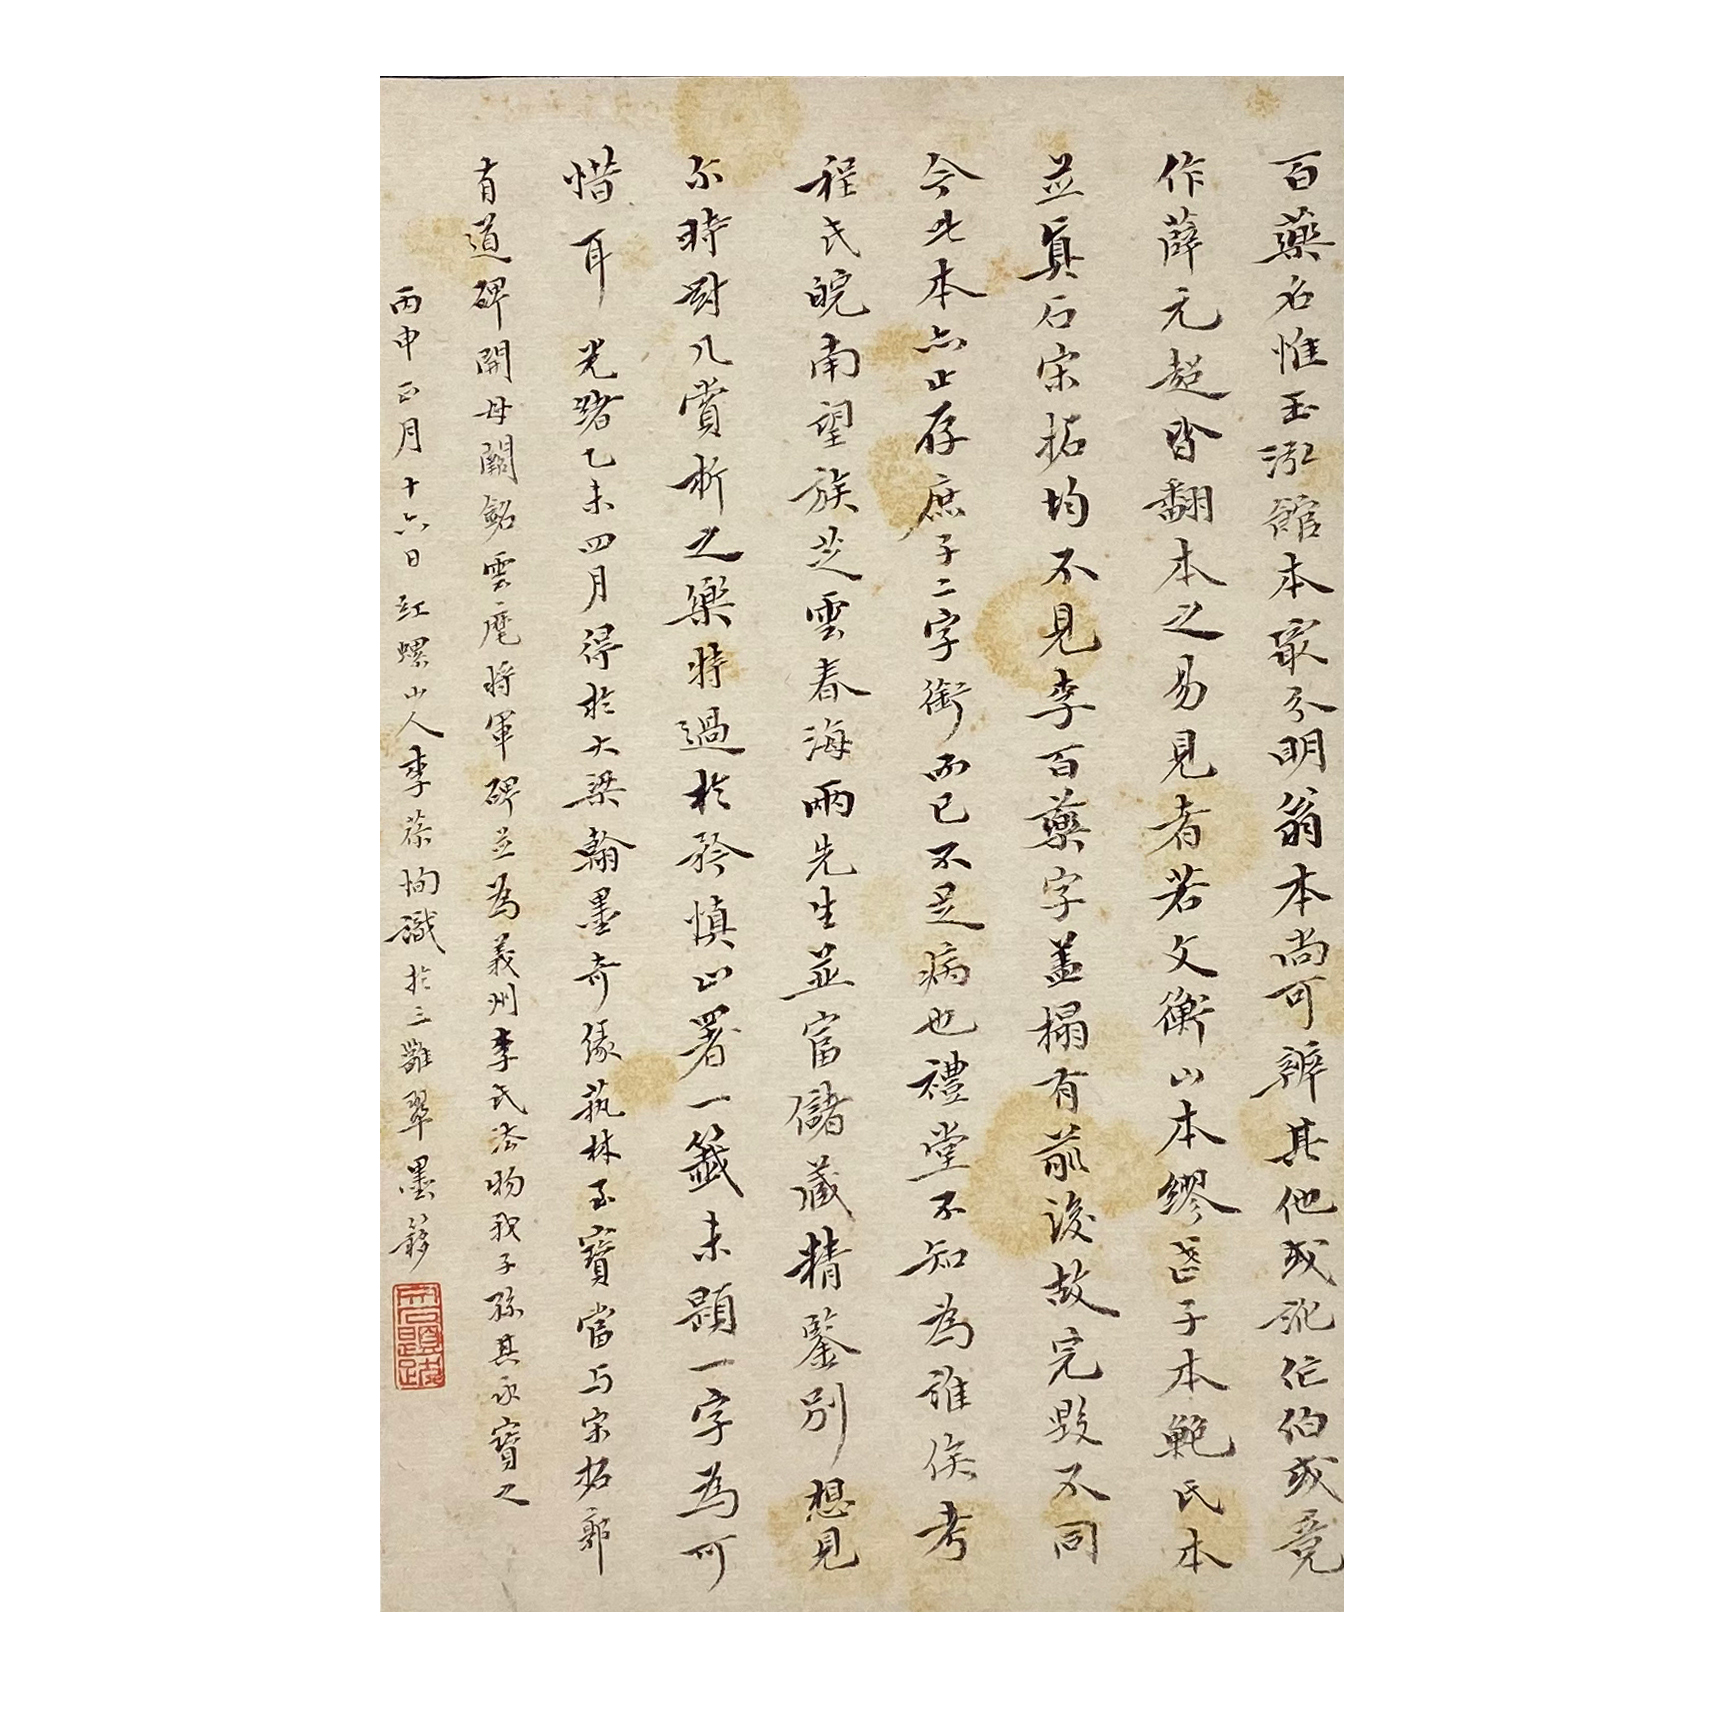 百藥名惟玉泓館本最分明翁本尚可辨其他或訛作伯或竟
作薛元超皆翻本之易見者若文衡山本繆荃子本範氏本
並真石宋拓均不見李百藥字蓋搨有前後故完毀不同
今此本亦止存庶子二字銜而已不足病也禮堂不知為誰俟考
程氏皖南望族芝雲春海兩先生並富儲藏精鑒別想見
尔時對几賞析之樂特過於矜慎止署一籤未題一字為可
惜耳 光緒乙未四月得於大梁翰墨奇緣執林至寶當与宋拓郭
有道碑開母闕銘雲麾將軍碑並為義州李氏法物我子孫其永寶之
丙申正月十六日紅螺山人李葆恂識於三雝翠墨簃